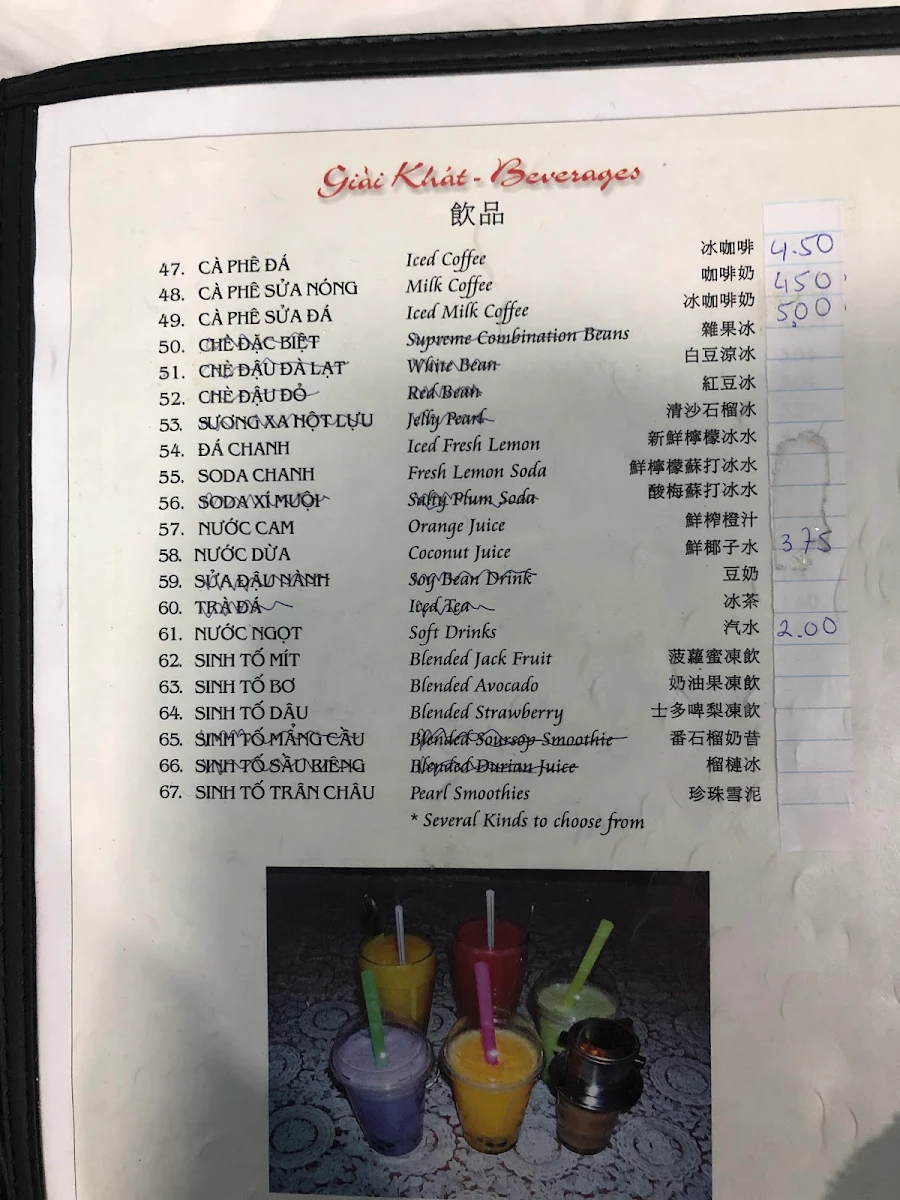 Giải Khát - Beverages
飲品
47. CÀ PHÊ ĐÁ Iced Coffee 冰咖啡 4.50
48. CÀ PHÊ SỬA NÓNG Milk Coffee 咖啡奶 450
49. CÀ PHÊ SỬA ĐÁ Iced Milk Coffee 冰咖啡奶 5,00
50. CHÈ ĐẶC BIỆT Supreme Combination Beans 雜果冰
51. CHÈ ĐẬU ĐÀ LẠT White Bean 白豆涼冰
52. CHÈ ĐẬU ĐỎ Red Bean 紅豆冰
53. SƯƠNG XA HỘT LỰU Jelly Pearl 清沙石榴冰
54. ĐÁ CHANH Iced Fresh Lemon 新鮮檸檬冰水
55. SODA CHANH Fresh Lemon Soda 鮮檸檬蘇打冰水
56. SODA XÍ MUỘI Salty Plum Soda 酸梅蘇打冰水
57. NƯỚC CAM Orange Juice 鮮榨橙汁
58. NƯỚC DỪA Coconut Juice 鮮椰子水 375
59. SỬA ĐẬU NÀNH Soy Bean Drink 豆奶
60. TRÀ ĐÁ Iced Tea 冰茶
61. NƯỚC NGỌT Soft Drinks 汽水 2.00
62. SINH TỐ MÍT Blended Jack Fruit 菠蘿蜜凍飲
63. SINH TỐ BƠ Blended Avocado 奶油果凍飲
64. SINH TỐ DÂU Blended Strawberry 士多啤梨凍飲
65. SINH TỐ MẢNG CẦU Blended Soursop Smoothie 番石榴奶昔
66. SINH TỐ SẦU RIÊNG Blended Durian Juice 榴槤冰
67. SINH TỐ TRÂN CHÂU Pearl Smoothies 珍珠雪泥
* Several Kinds to choose from